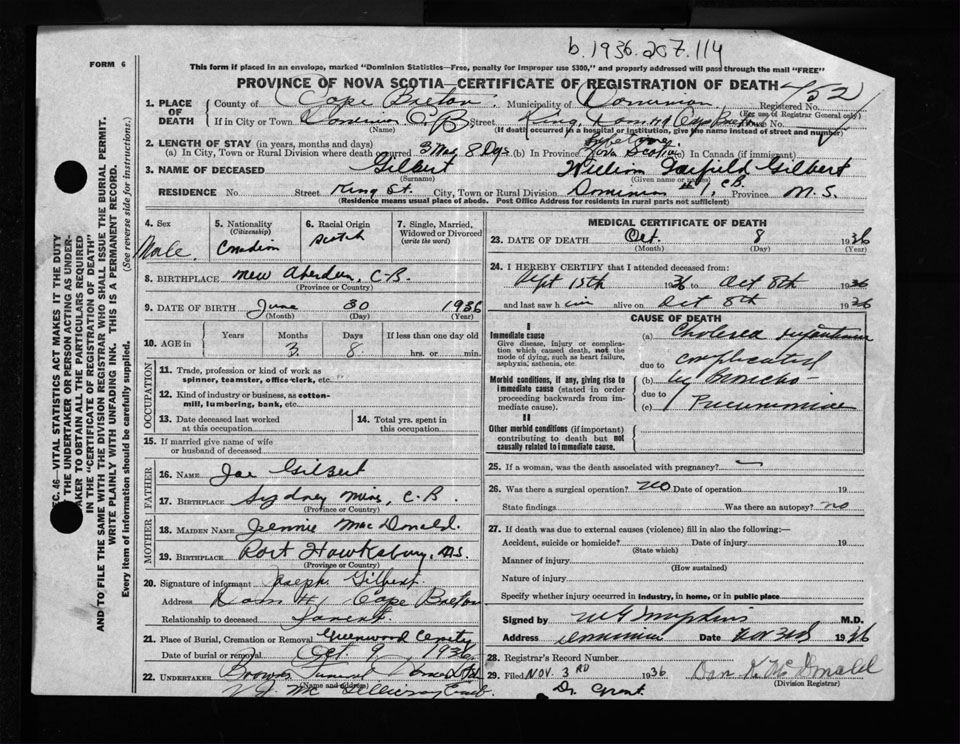 b. 1936.207.114
FORM 6
This form if placed in an envelope, marked "Dominion Statistics—Free, penalty for improper use $300," and properly addressed will pass through the mail "FREE"
PROVINCE OF NOVA SCOTIA—CERTIFICATE OF REGISTRATION OF DEATH 452
1. PLACE OF DEATH County of Cape Breton Municipality of Dominion Registered No.
(For use of Registrar General only)
If in City or Town Dominion C.B. Street King, Dom. #1 Cape Breton House No.
(Name) (If death occurred in a hospital or institution, give the name instead of street and number)
2. LENGTH OF STAY (in years, months and days)
(a) In City, Town or Rural Division where death occurred 3 Mos 8 Dys. (b) In Province Nova Scotia (c) In Canada (if immigrant)
3. NAME OF DECEASED Gilbert William Garfield Gilbert
(Surname) (Given name or names)
RESIDENCE No. Street King St. City, Town or Rural Division Dominion #1, C.B. Province N.S.
(Residence means usual place of abode. Post Office Address for residents in rural parts not sufficient)
4. Sex Male.
5. Nationality (Citizenship) Canadian
6. Racial Origin Scotch
7. Single, Married, Widowed or Divorced (write the word)
8. BIRTHPLACE New Aberdeen, C-B.
(Province or Country)
9. DATE OF BIRTH June 30 1936
(Month) (Day) (Year)
10. AGE in Years Months 3 Days 8 If less than one day old hrs. or min.
OCCUPATION
11. Trade, profession or kind of work as spinner, teamster, office clerk, etc.
12. Kind of industry or business, as cotton-mill, lumbering, bank, etc.
13. Date deceased last worked at this occupation
14. Total yrs. spent in this occupation
15. If married give name of wife or husband of deceased
FATHER
16. NAME Joe Gilbert
17. BIRTHPLACE Sydney Mines, C.B.
(Province or Country)
MOTHER
18. MAIDEN NAME Jennie MacDonald.
19. BIRTHPLACE Port Hawksbury, N.S.
(Province or Country)
20. Signature of informant Joseph Gilbert.
Address Dom #1 Cape Breton
Relationship to deceased Parent.
21. Place of Burial, Cremation or Removal Greenwood Cemetery
Date of burial or removal Oct 9, 1936
22. UNDERTAKER Brown's Funeral Home Ltd
(Name and address)
MEDICAL CERTIFICATE OF DEATH
23. DATE OF DEATH Oct. 8 1936
(Month) (Day) (Year)
24. I HEREBY CERTIFY that I attended deceased from
Sept 15th 1936 to Oct 8th 1936
and last saw him alive on Oct 8th 1936
CAUSE OF DEATH
I
Immediate cause
Give disease, injury or complication which caused death, not the mode of dying, such as heart failure, asphyxia, asthenia, etc.
Morbid conditions, if any, giving rise to immediate cause (stated in order proceeding backwards from immediate cause).
II
Other morbid conditions (if important) contributing to death but not causally related to immediate cause.
(a) Cholera Infantum
due to complicated
(b) by Broncho-
due to
(c) Pneumonia
25. If a woman, was the death associated with pregnancy?
26. Was there a surgical operation? No Date of operation 19
State findings Was there an autopsy? no
27. If death was due to external causes (violence) fill in also the following:—
Accident, suicide or homicide? Date of injury 19
(State which)
Manner of injury
(How sustained)
Nature of injury
Specify whether injury occurred in industry, in home, or in public place
Signed by M.D.
Address Dominion Date Nov 3rd 1936
28. Registrar's Record Number
29. Filed NOV. 3RD 1936 Dan K. McDonald
(Division Registrar)
Dr. Grant.
SEC. 46—VITAL STATISTICS ACT MAKES IT THE DUTY OF THE UNDERTAKER OR PERSON ACTING AS UNDERTAKER TO OBTAIN ALL THE PARTICULARS REQUIRED IN THE "CERTIFICATE OF REGISTRATION OF DEATH"
AND TO FILE THE SAME WITH THE DIVISION REGISTRAR WHO SHALL ISSUE THE BURIAL PERMIT.
WRITE PLAINLY WITH UNFADING INK. THIS IS A PERMANENT RECORD.
Every item of information should be carefully supplied. (See reverse side for instructions.)